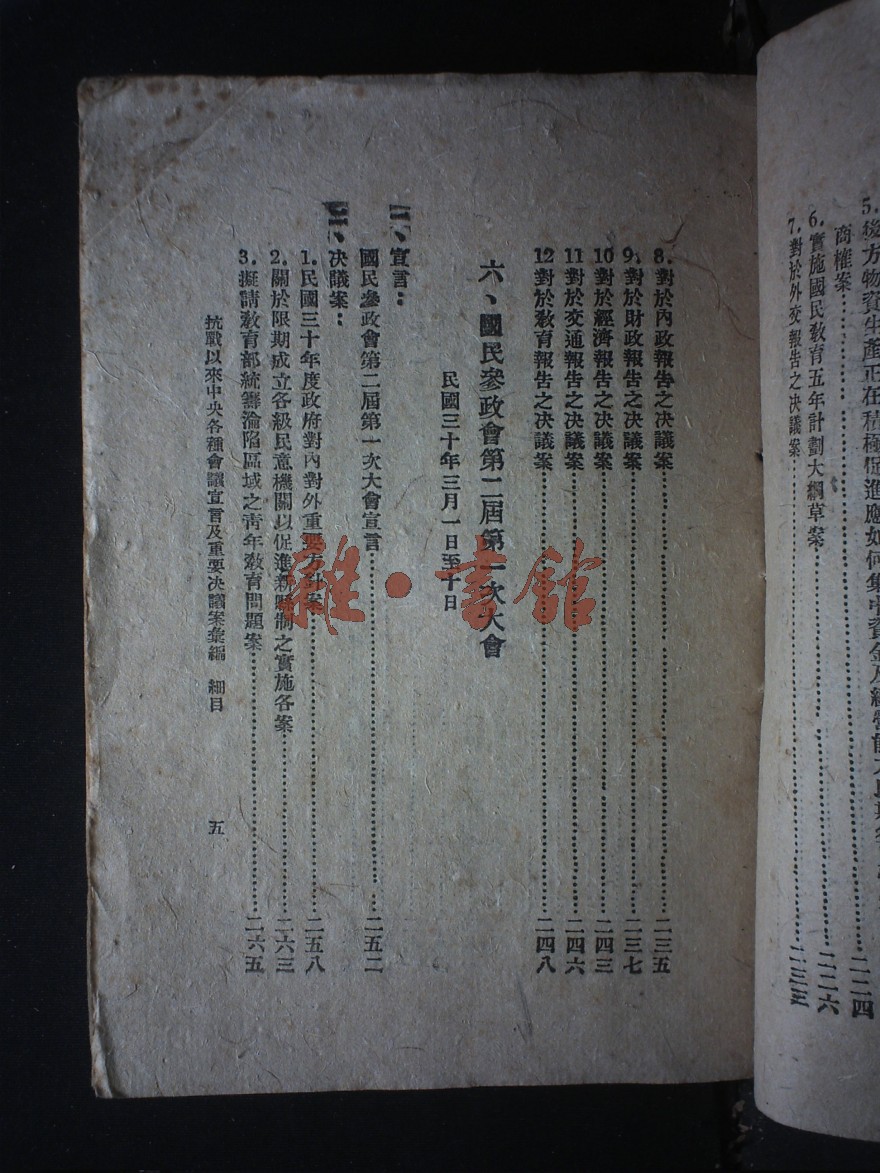 5.後方物資生產正在積極促進應如何集中資金及經營
商榷案……二二四
6.實施國民敎育五年計劃大綱草案……二二六
7.對於外交報告之决議案……二三三
8.對於內政報告之决議案……二三五
9.對於財政報告之决議案……二三七
10對於經濟報告之决議案……二四三
11對於交通報告之决議案……二四六
12對於敎育報告之决議案……二四八
六、國民參政會第二屆第一次大會
民國三十年三月一日至十日
一、宣言：
國民參政會第二屆第一次大會宣言……二五二
二、决議案：
1.民國三十年度政府對內對外重要方針案……二五八
2.關於限期成立各級民意機關以促進新縣制之實施各案……二六三
3.擬請敎育部統籌淪陷區域之靑年敎育問題案……二六五
抗戰以來中央各種會議宣言及重要决議案彙編 細目 五
雜·書館